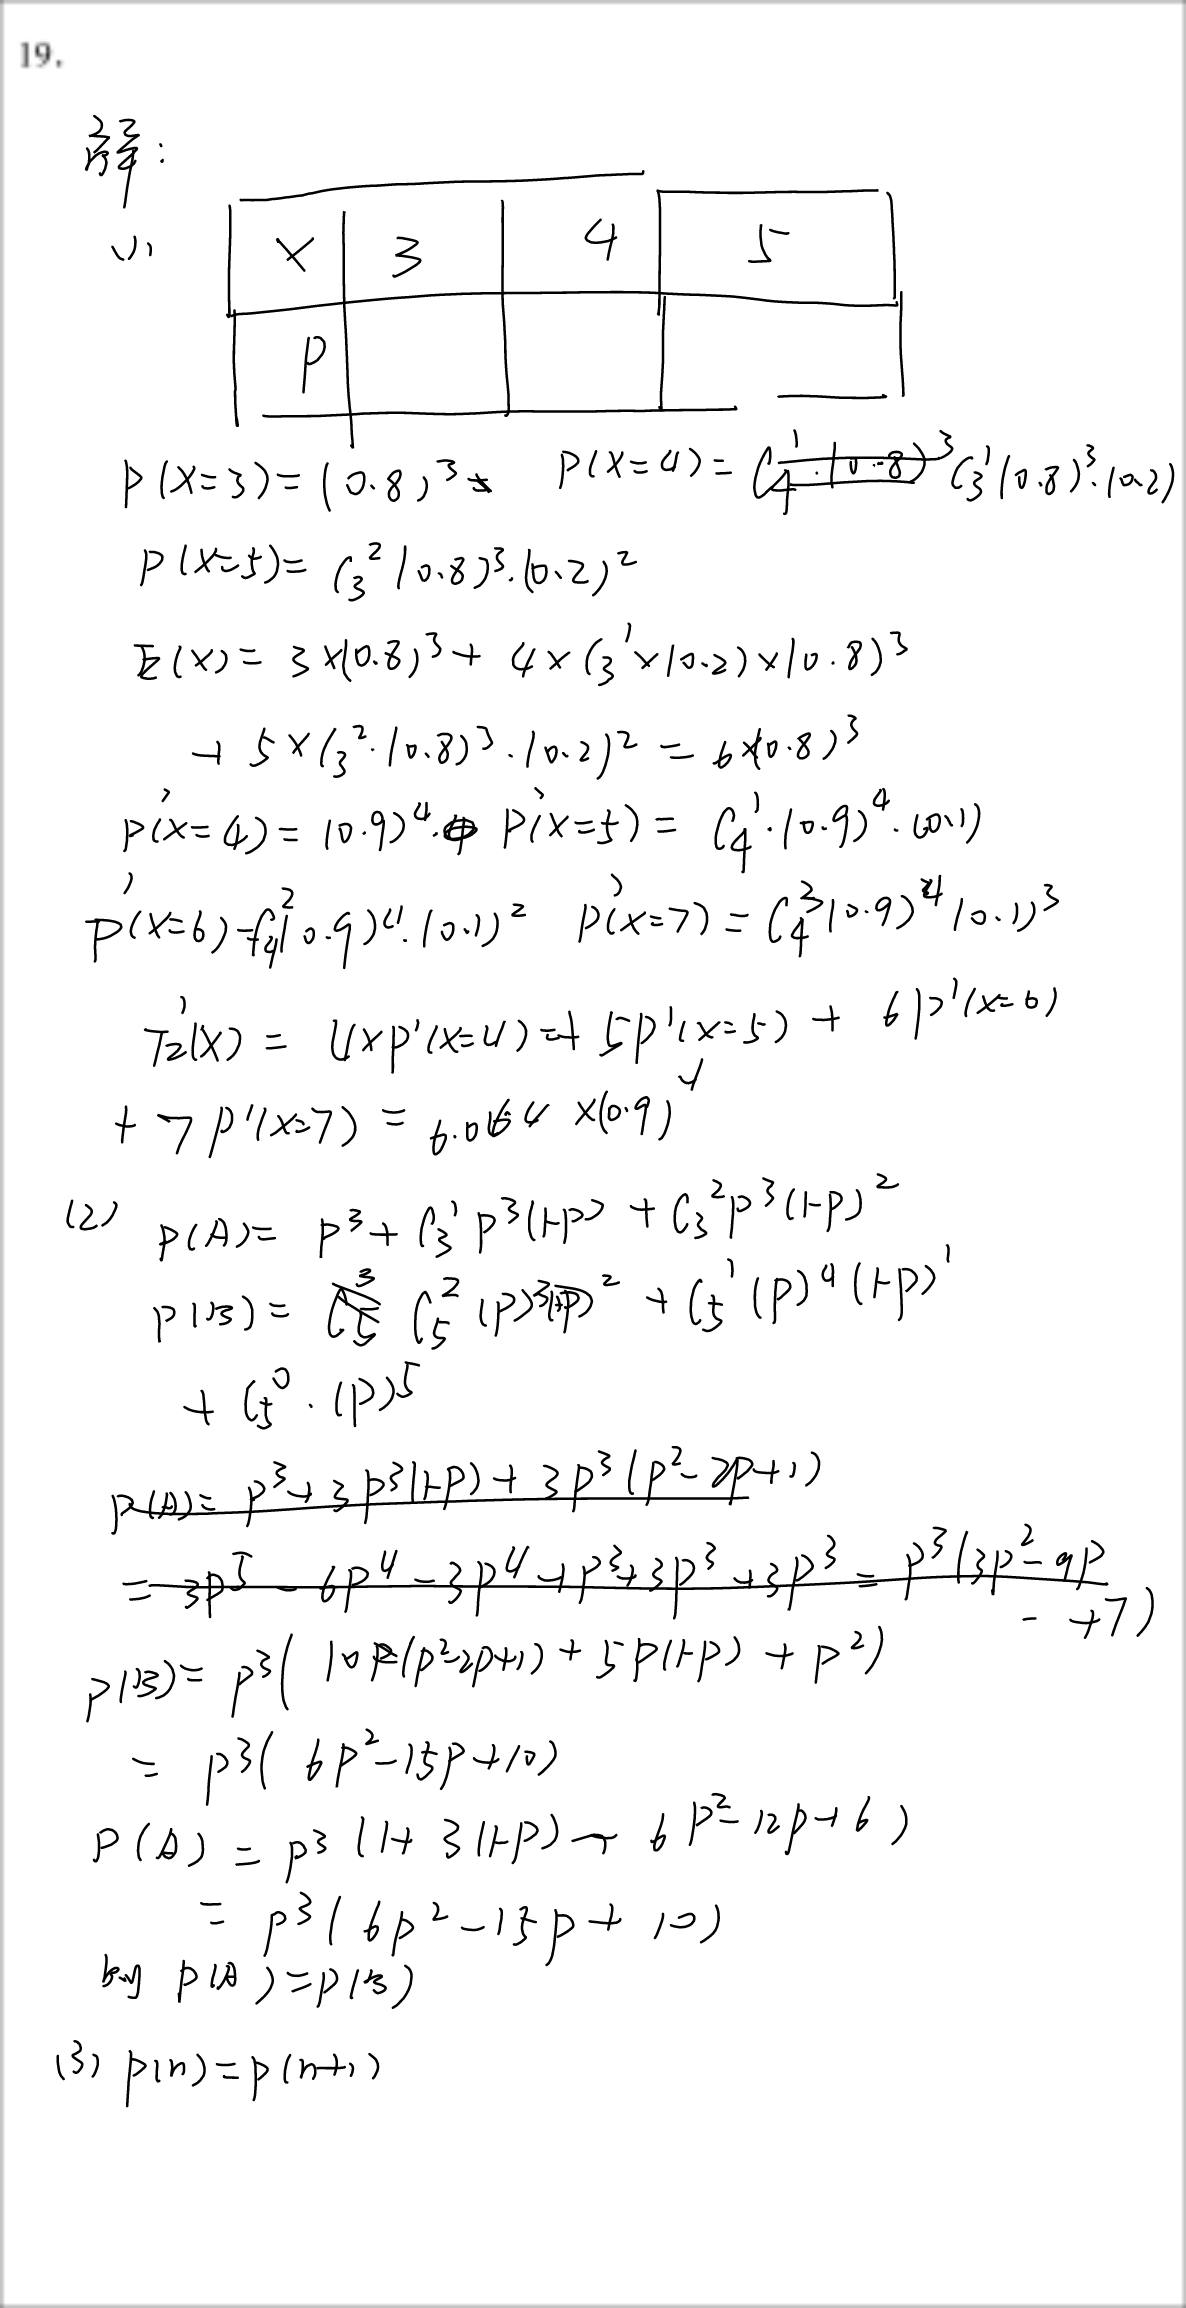 19.
解:
(1)
X 3 4 5
P
P(X=3)=(0.8)³ P(X=4)=C₃¹(0.8)³·(0.2)
P(X=5)=C₃²(0.8)³·(0.2)²
E(X)=3×(0.8)³+4×C₃¹×(0.2)×(0.8)³
+5×C₃²·(0.8)³·(0.2)²=6×(0.8)³
P'(X=4)=(0.9)⁴ P'(X=5)=C₄¹·(0.9)⁴·(0.1)
P'(X=6)=C₄²(0.9)⁴·(0.1)² P'(X=7)=C₄³(0.9)⁴(0.1)³
E'(X)=4×P'(X=4)+5P'(X=5)+6P'(X=6)
+7P'(X=7)=6.064×(0.9)⁴
(2) P(A)=P³+C₃¹P³(1-P)+C₃²P³(1-P)²
P(B)=C₅²(P)³(1-P)²+C₅¹(P)⁴(1-P)¹
+C₅⁰·(P)⁵
P(A)=P³+3P³(1-P)+3P³(P²-2P+1)
=3P⁵-6P⁴-3P⁴+P³+3P³+3P³=P³(3P²-9P
+7)
P(B)=P³(10(P²-2P+1)+5P(1-P)+P²)
=P³(6P²-15P+10)
P(A)=P³(1+3(1-P)+6P²-12P+6)
=P³(6P²-15P+10)
P(A)=P(B)
(3) P(n)=P(n+1)